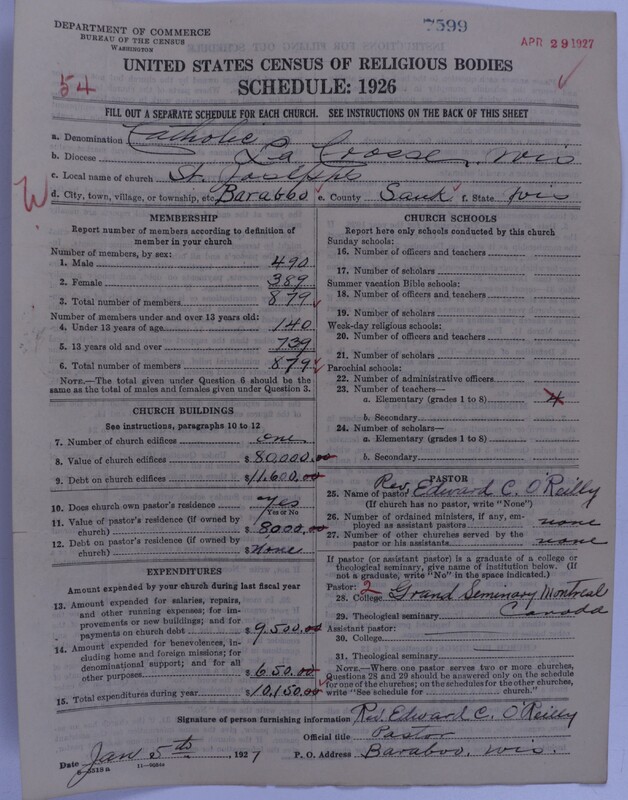 7599
DEPARTMENT OF COMMERCE
BUREAU OF THE CENSUS
WASHINGTON
APR 29 1927
UNITED STATES CENSUS OF RELIGIOUS BODIES
54
SCHEDULE: 1926
FILL OUT A SEPARATE SCHEDULE FOR EACH CHURCH. SEE INSTRUCTIONS ON THE BACK OF THIS SHEET
a. Denomination Catholic
b. Diocese La Crosse, Wis
c. Local name of church St. Josephs
W
d. City, town, village, or township, etc. Baraboo e. County Sauk f. State Wis
MEMBERSHIP
Report number of members according to definition of member in your church
Number of members, by sex:
1. Male 490
2. Female 389
3. Total number of members 879
Number of members under and over 13 years old:
4. Under 13 years of age 140
5. 13 years old and over 739
6. Total number of members 879
NOTE.—The total given under Question 6 should be
same as the total of males and females given under Question 3.
CHURCH BUILDINGS
See instructions, paragraphs 10 to 12
7. Number of church edifices one
8. Value of church edifices $ 80,000.00
9. Debt on church edifices $ 11,600.00
10. Does church own pastor's residence yes
Yes or No
11. Value of pastor's residence (if owned by
church) $ 8000.00
12. Debt on pastor's residence (if owned by
church) $ none
EXPENDITURES
Amount expended by your church during last fiscal year
13. Amount expended for salaries, repairs,
and other running expenses; for im-
provements or new buildings; and for
payments on church debt $ 9,500.00
14. Amount expended for benevolences, in-
cluding home and foreign missions; for
denominational support; and for all
other purposes $ 650.00
15. Total expenditures during year $ 10,150.00
CHURCH SCHOOLS
Report here only schools conducted by this church
Sunday schools:
16. Number of officers and teachers
17. Number of scholars
Summer vacation Bible schools:
18. Number of officers and teachers
19. Number of scholars
Week-day religious schools:
20. Number of officers and teachers
21. Number of scholars
Parochial schools:
22. Number of administrative officers
23. Number of teachers—
a. Elementary (grades 1 to 8)
b. Secondary
24. Number of scholars—
a. Elementary (grades 1 to 8)
b. Secondary
PASTOR
25. Name of pastor Rev. Edward C. O'Reilly
(If church has no pastor, write "None")
26. Number of ordained ministers, if any, em-
ployed as assistant pastors none
27. Number of other churches served by the
pastor or his assistants none
If pastor (or assistant pastor) is a graduate of a college or
theological seminary, give name of institution below. (If
not a graduate, write "No" in the space indicated.)
Pastor: 2
28. College Grand Seminary Montreal
29. Theological seminary Canada
Assistant pastor:
30. College
31. Theological seminary
NOTE.—Where one pastor serves two or more churches,
Questions 28 and 29 should be answered only on the schedule
for one of the churches; on the schedules for the other churches,
write "See schedule for church."
Signature of person furnishing information Rev. Edward C. O'Reilly
Official title Pastor
Date Jan 5th, 1927 P. O. Address Baraboo, Wis.